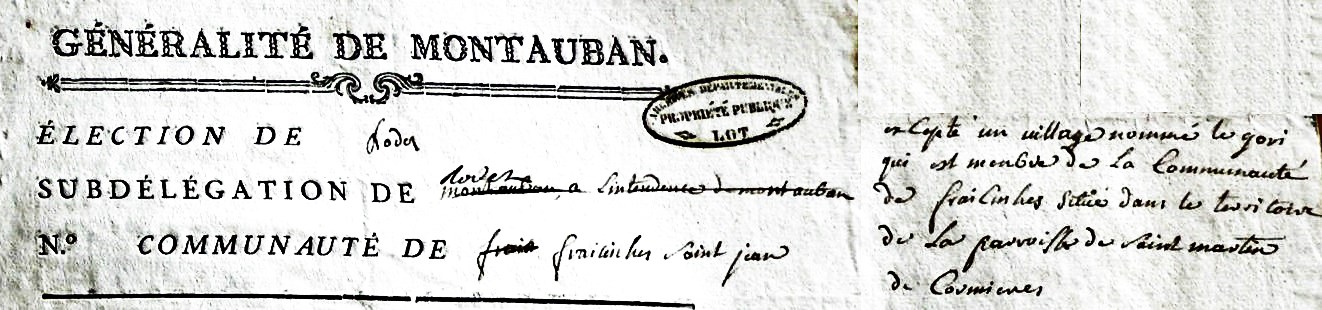 GÉNÉRALITÉ DE MONTAUBAN.
ARCHIVES DÉPARTEMENTALES
PROPRIÉTÉ PUBLIQUE
LOT
ÉLECTION DE Rodez
SUBDÉLÉGATION DE montauban a l'intendence de montauban
N.º COMMUNAUTÉ DE frais fraicinhes saint jean
excepté un village nommé le gori
qui est membre de La Communauté
de fraicinhes sitüé dans le territoire
de La parroisse de saint martin
de Cormieres